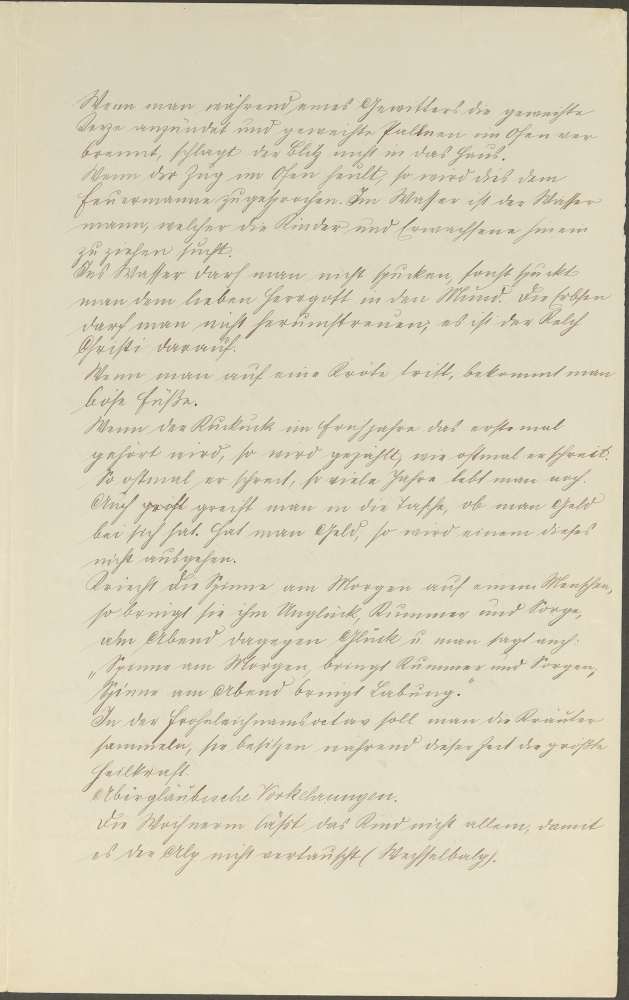 Wenn man während eines Gewitters die geweihte
Kerze anzündet und geweihte Palmen im Ofen ver
brennt, schlagt der Blitz nicht in das Haus.
Wenn der Zug im Ofen heult, so wird dies dem
Feuermanne zugesprochen. Im Wasser ist der Wasser
mann, welcher die Kinder und Erwachsene hinein
zu ziehen sucht.
Ins Wasser darf man nicht spucken, sonst spuckt
man dem lieben Herrgott in den Mund. Die Erbsen
darf man nicht herumstreuen, es ist der Kelch
Christi darauf.
Wenn man auf eine Kröte tritt, bekommt man
böse Füße.
Wenn der Kuckuck im Frühjahre das erste mal
gehört wird, so wird gezählt, wie oftmal er schreit.
So oftmal er schreit, so viele Jahre lebt man noch.
Auch greift man in die Tasche, ob man Geld
bei sich hat. Hat man Geld, so wird einem dieses
nicht ausgehen.
Kriecht die Spinne am Morgen auf einem Menschen,
so bringt sie ihm Unglück, Kummer und Sorge,
am Abend dagegen Glück u man sagt auch:
"Spinne am Morgen, bringt Kummer und Sorgen,
Spinne am Abend bringt Labung."
In der Frohnleichnamsoctav soll man die Kräuter
sammeln, sie besitzen während dieser Zeit die größte
Heilkraft.
Abergläubische Vorkehrungen.
Die Wöchnerin läßt das Kind nicht allein, damit
es der Alp nicht vertauscht (Wechselbalg).